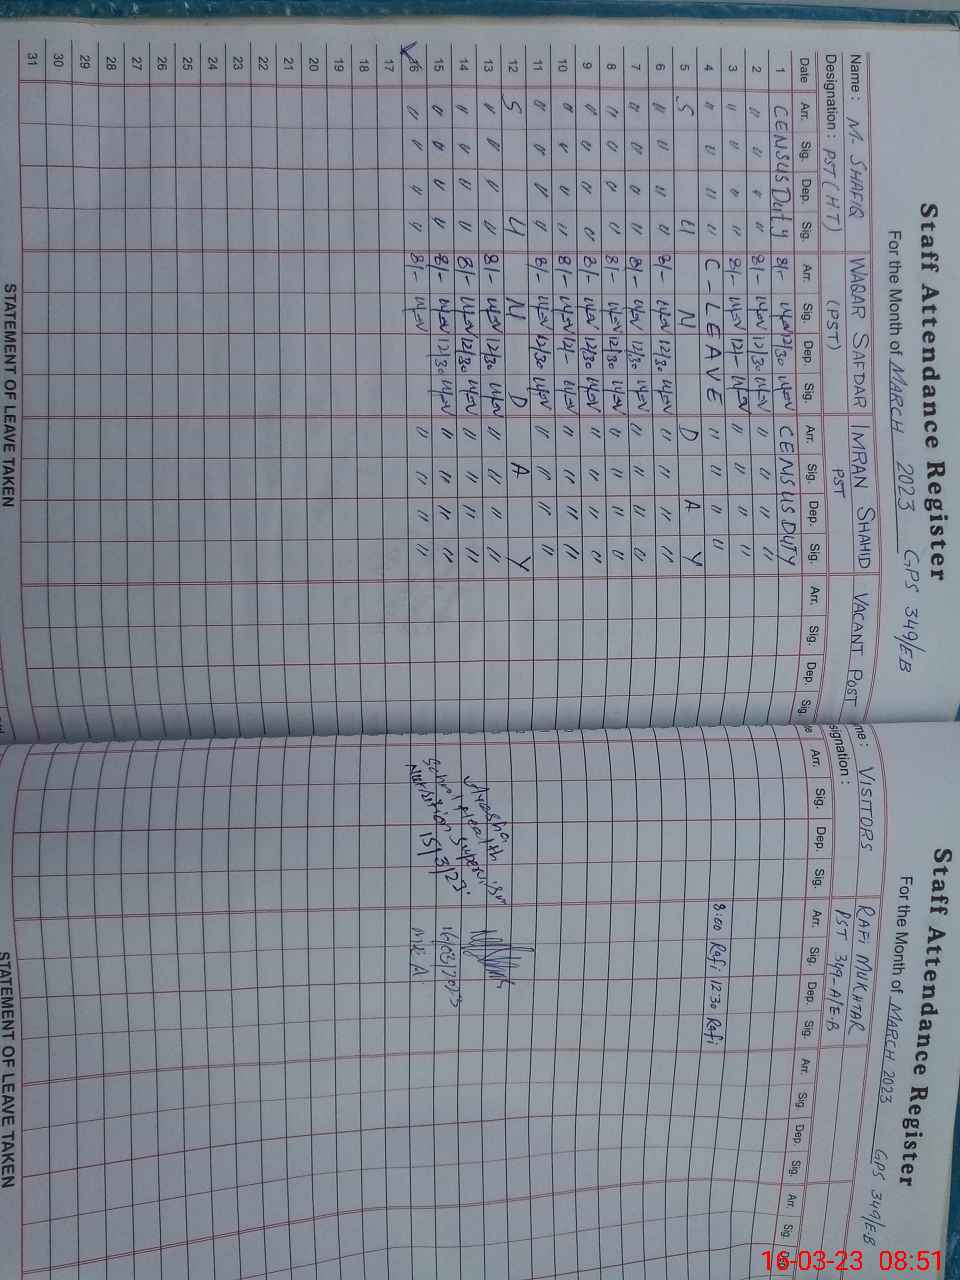 Staff Attendance Register
For the Month of MARCH 2023 GPS 349/EB
Name : M. SHAFIQ WAQAR SAFDAR IMRAN SHAHID VACANT POST
Designation : PST (HT) (PST) PST
Date Arr. Sig. Dep. Sig. Arr. Sig. Dep. Sig. Arr. Sig. Dep. Sig. Arr. Sig. Dep. Sig.
1 CENSUS Duty 8/- 12/30 CENSUS DUTY
2 " " " " 8/- 12/30 " " " "
3 " " " " 8/- 12/- " " " "
4 " " " " C-LEAVE " " " "
5 S U N D A Y
6 " " " " 8/- 12/30 " " " "
7 " " " " 8/- 12/30 " " " "
8 " " " " 8/- 12/30 " " " "
9 " " " " 8/- 12/30 " " " "
10 " " " " 8/- 12/- " " " "
11 " " " " 8/- 12/30 " " " "
12 S U N D A Y
13 " " " " 8/- 12/30 " " " "
14 " " " " 8/- 12/30 " " " "
15 " " " " 8/- 12/30 " " " "
16 " " " " 8/- " " " "
17
18
19
20
21
22
23
24
25
26
27
28
29
30
31
STATEMENT OF LEAVE TAKEN
Staff Attendance Register
For the Month of MARCH 2023 GPS 349/EB
me : VISITORS RAFI MUKHTAR
signation : PST 349-A/E.B
Arr. Sig. Dep. Sig. Arr. Sig. Dep. Sig. Arr. Sig. Dep. Sig. Arr. Sig.
8:00 Rafi 12:30 Rafi
Ayesha
School Health &
Nutrition Supervisor
15/3/23
16/03/2023
MEA
STATEMENT OF LEAVE TAKEN
16-03-23 08:51